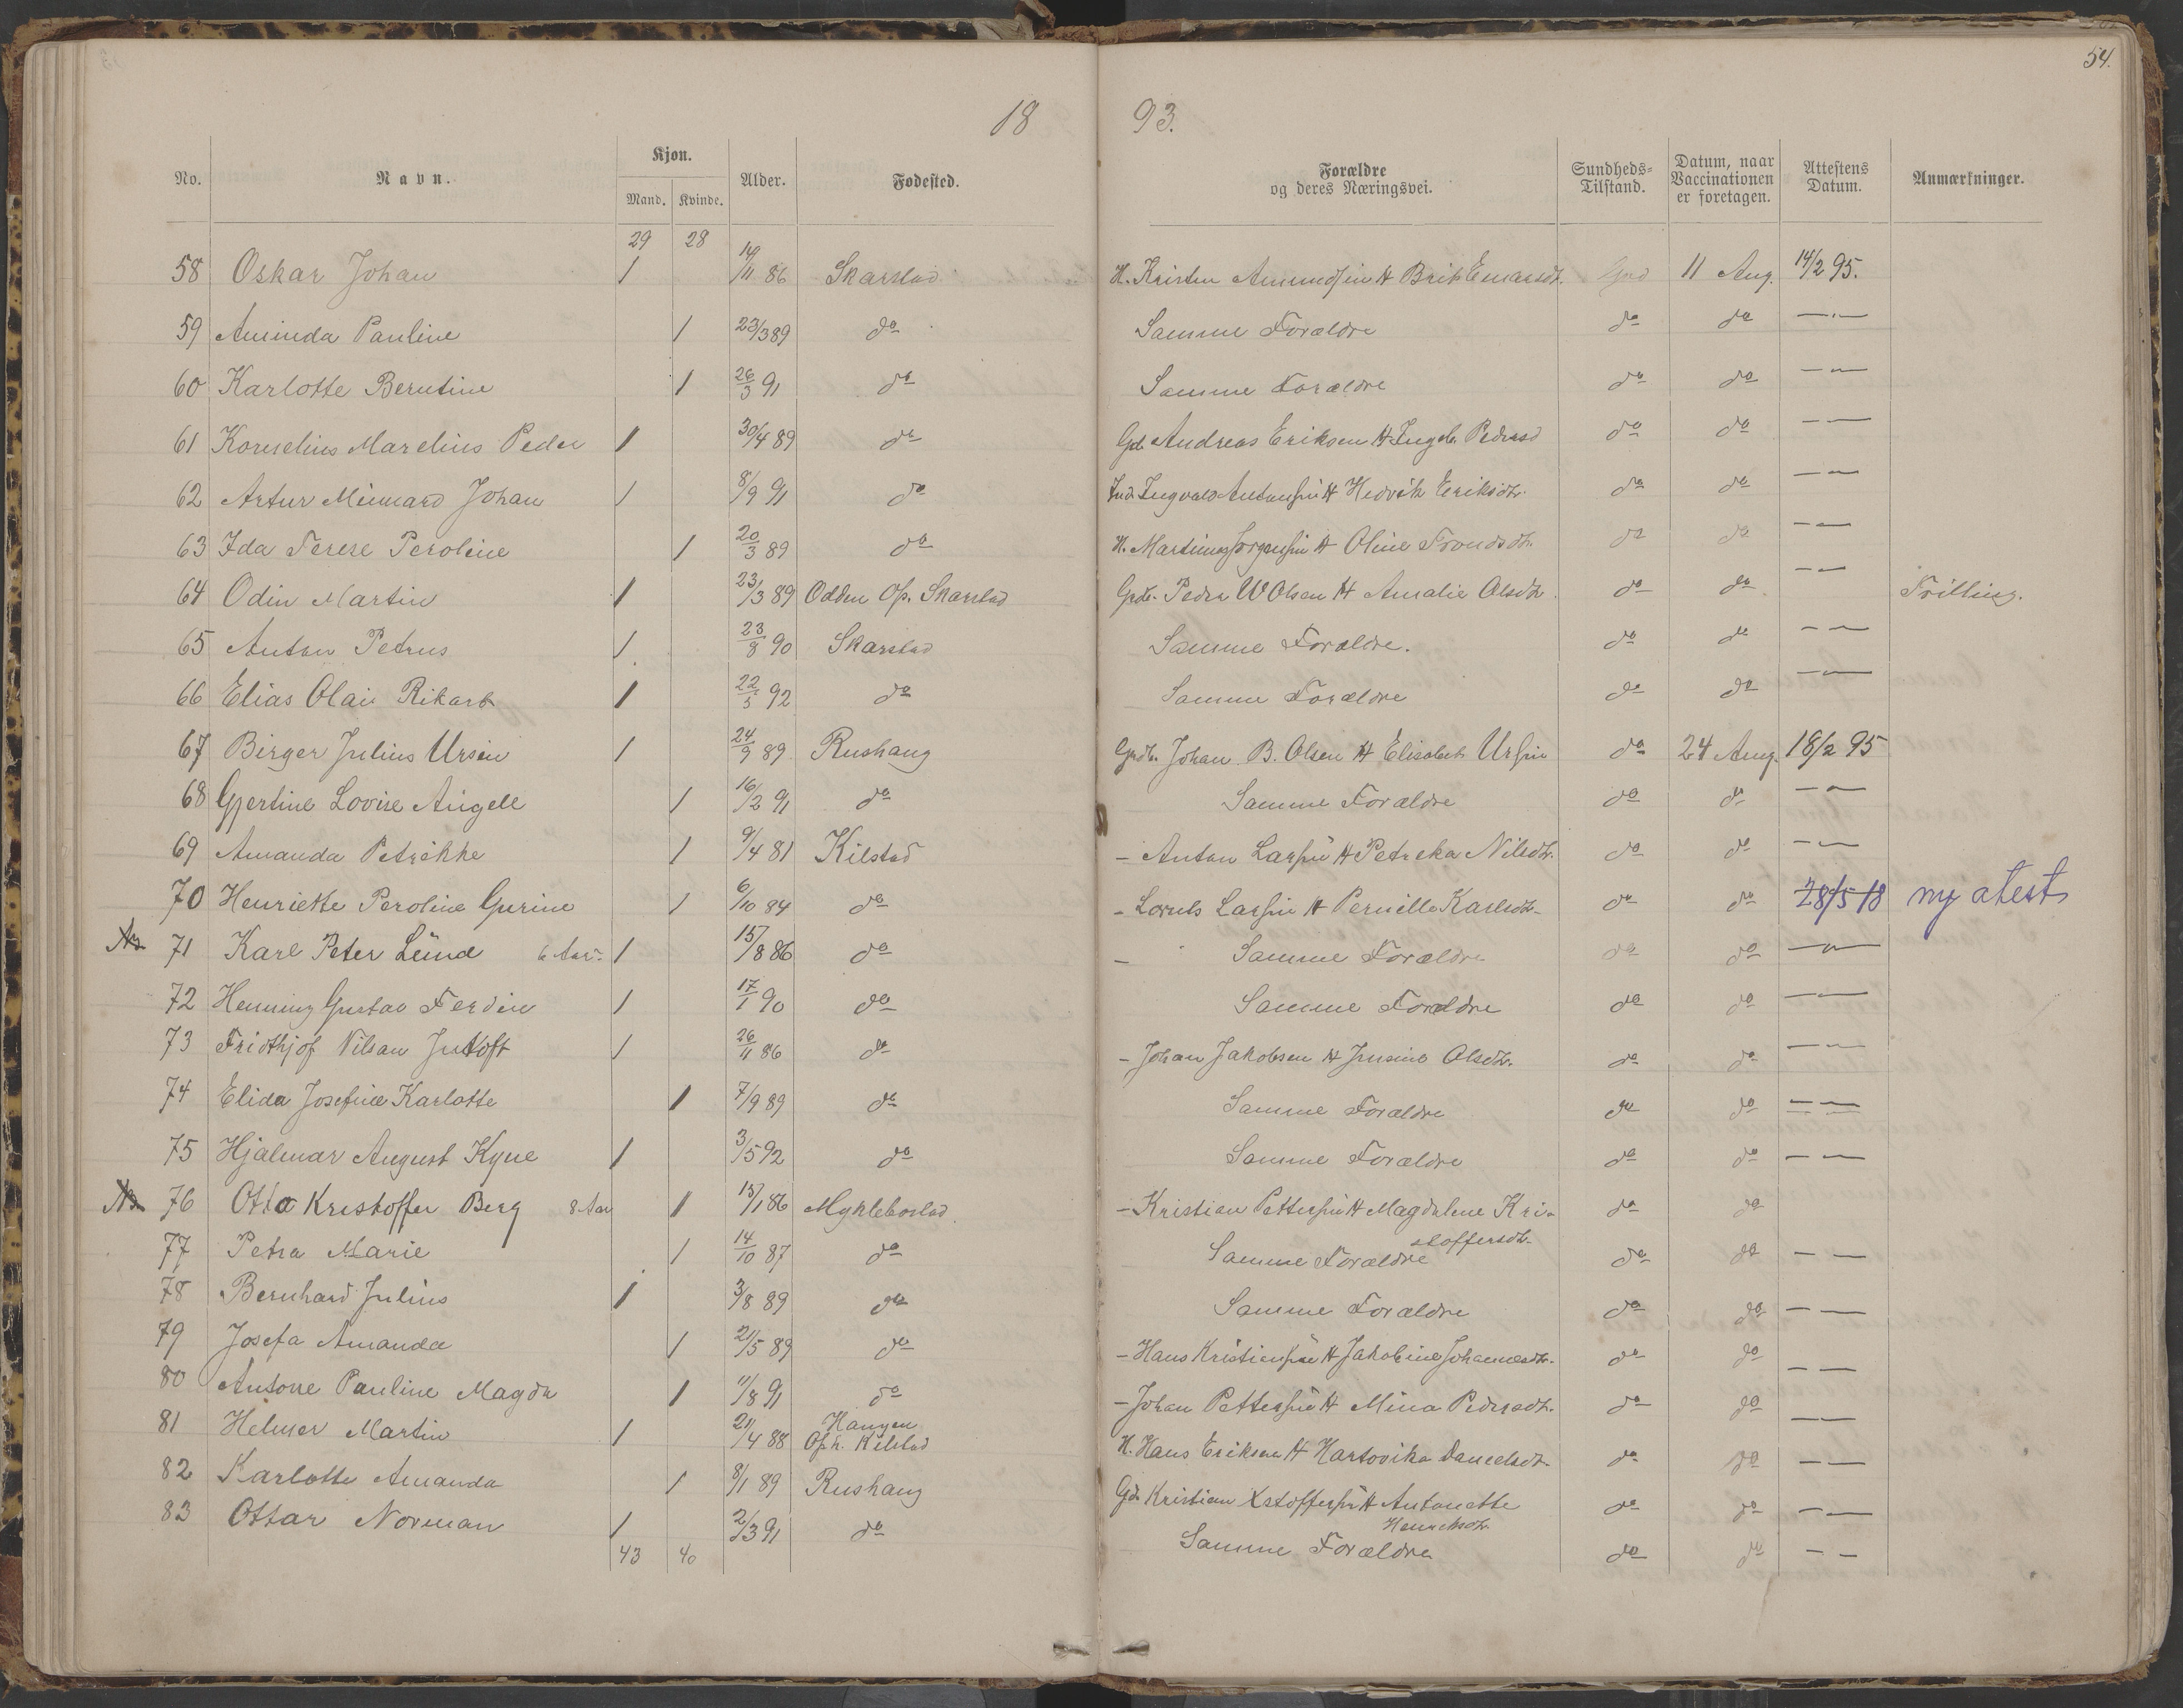 54.
18 93.
No. Navn. Kjøn. Mand. Kvinde. Alder. Fødested. Forældre og deres Næringsvei. Sundheds-Tilstand. Datum, naar Vaccinationen er foretagen. Attestens Datum. Anmærkninger.
29 28
58 Oskar Johan 1 19/11 86 Skarstad H. Kristen Amundsen & Brit Enarsdt. God 11 Aug. 14/2 95.
59 Aminda Pauline 1 23/3 89 do Samme Forældre do do — " —
60 Karlotte Berntine 1 26/3 91 do Samme Forældre do do — " —
61 Kornelius Marelius Peder 1 30/4 89 do Gdb. Andreas Eriksen & Ingeb. Pedersd do do — —
62 Artur Meinard Johan 1 8/9 91 do Ind. Ingvald Antonsen & Hedvik Eriksdt. do do — " —
63 Ida Terese Peroline 1 20/3 89 do H. Martinus Jørgensen & Oline Trondsdt. do do — " —
64 Odin Martin 1 23/3 89 Odden Op. Skarstad Grdb. Peder W Olsen & Amalie Olsdt. do do — " — Trilling.
65 Anton Petrus 1 23/8 90 Skarstad Samme Forældre. do do — " —
66 Elias Olai Rikart 1 22/5 92 do Samme Forældre do do — " —
67 Birger Julius Ursin 1 24/9 89 Rushaug Grdb. Johan B. Olsen & Elisabet Ursin do 24 Aug. 18/2 95
68 Gjertine Lovise Angell 1 16/2 91 do Samme Forældre do do — " —
69 Amanda Petrikke 1 9/4 81 Kilstad – Anton Larsen & Petreka Nilsdt. do do — " —
70 Henriette Peroline Gurine 1 6/10 84 do – Lornts Larsen & Pernille Karlsdt. do do 28/5 18 ny atest
No 71 Karl Peter Lund 6 Aar 1 15/8 86 do – Samme Forældre do do — " —
72 Henning Gustav Ferdin 1 17/1 90 do Samme Forældre do do — " —
73 Fridthjof Nilsan Justoft 1 26/11 86 do – Johan Jakobsen & Jensine Olsdt. do do — " —
74 Elida Josefine Karlotte 1 7/9 89 do Samme Forældre do do — —
75 Hjalmar August Kyne 1 3/5 92 do Samme Forældre do do — —
No 76 Otto Kristoffer Berg 8 Aar 1 15/1 86 Myklebostad – Kristian Pettersen & Magdalene Kri-
stoffersdt. do do
77 Petra Marie 1 14/10 87 do Samme Forældre do do — —
78 Bernhard Julius 1 3/8 89 do Samme Forældre do do — —
79 Josefa Amanda 1 21/5 89 do – Hans Kristiansen & Jakobine Johannesdt. do do — —
80 Antone Pauline Magda 1 11/8 91 do – Johan Pettersen & Mina Pedersdt. do do — —
81 Helmer Martin 1 21/4 88 Haugen
Oph. Kilstad H. Hans Eriksen & Hartvika Danielsdt. do do — —
82 Karlotte Amanda 1 8/1 89 Rushaug Gd. Kristian Xstoffersen & Antonette
Henriksdt. do do — —
83 Ottar Norman 1 2/3 91 do Samme Forældre do do — —
43 40